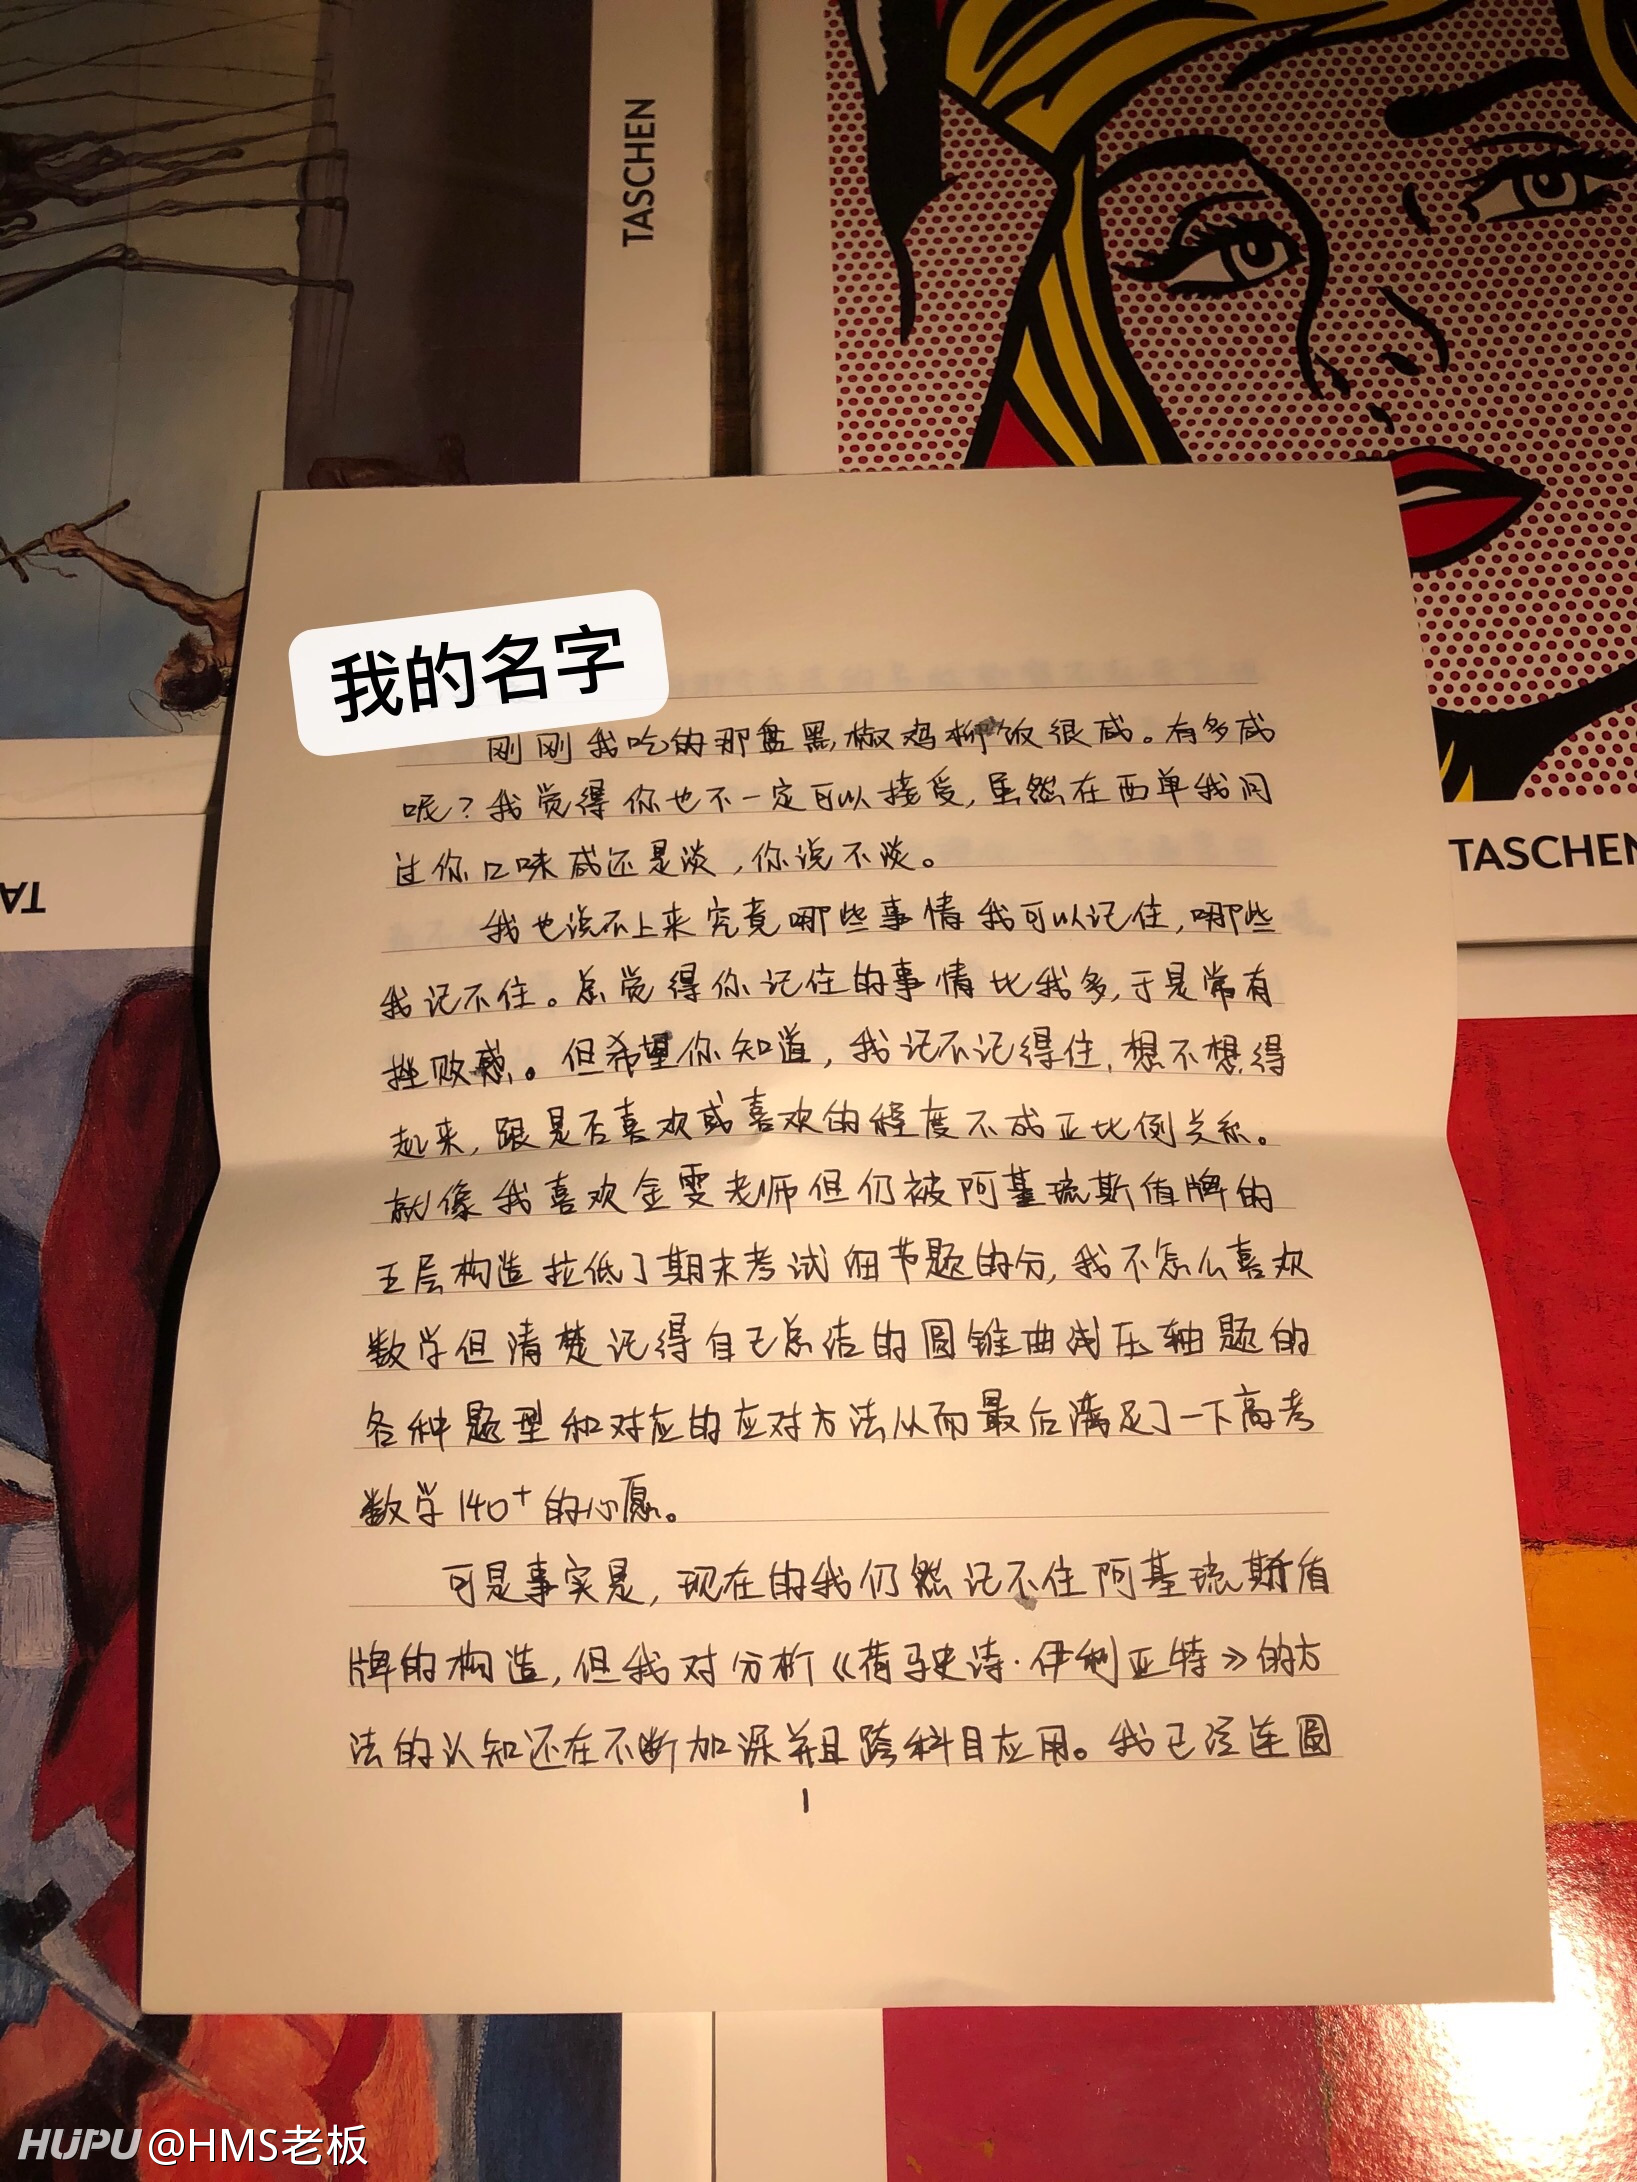 TASCHEN
TASCHEN
TA
我的名字
刚刚我吃的那盘黑椒鸡柳饭很咸。有多咸
呢？我觉得你也不一定可以接受，虽然在西单我问
过你口味咸还是淡，你说不淡。
我也说不上来究竟哪些事情我可以记住，哪些
我记不住。总觉得你记住的事情比我多，于是常有
挫败感。但希望你知道，我记不记得住，想不想得
起来，跟是否喜欢或喜欢的程度不成正比例关系。
就像我喜欢金雯老师但仍被阿基琉斯盾牌的
五层构造拉低了期末考试细节题的分，我不怎么喜欢
数学但清楚记得自己总结的圆锥曲线压轴题的
各种题型和对应的应对方法从而最后满足了一下高考
数学140+的心愿。
可是事实是，现在的我仍然记不住阿基琉斯盾
牌的构造，但我对分析《荷马史诗·伊利亚特》的方
法的认知还在不断加深并且跨科目应用。我已经连圆
1
HUPU @HMS老板